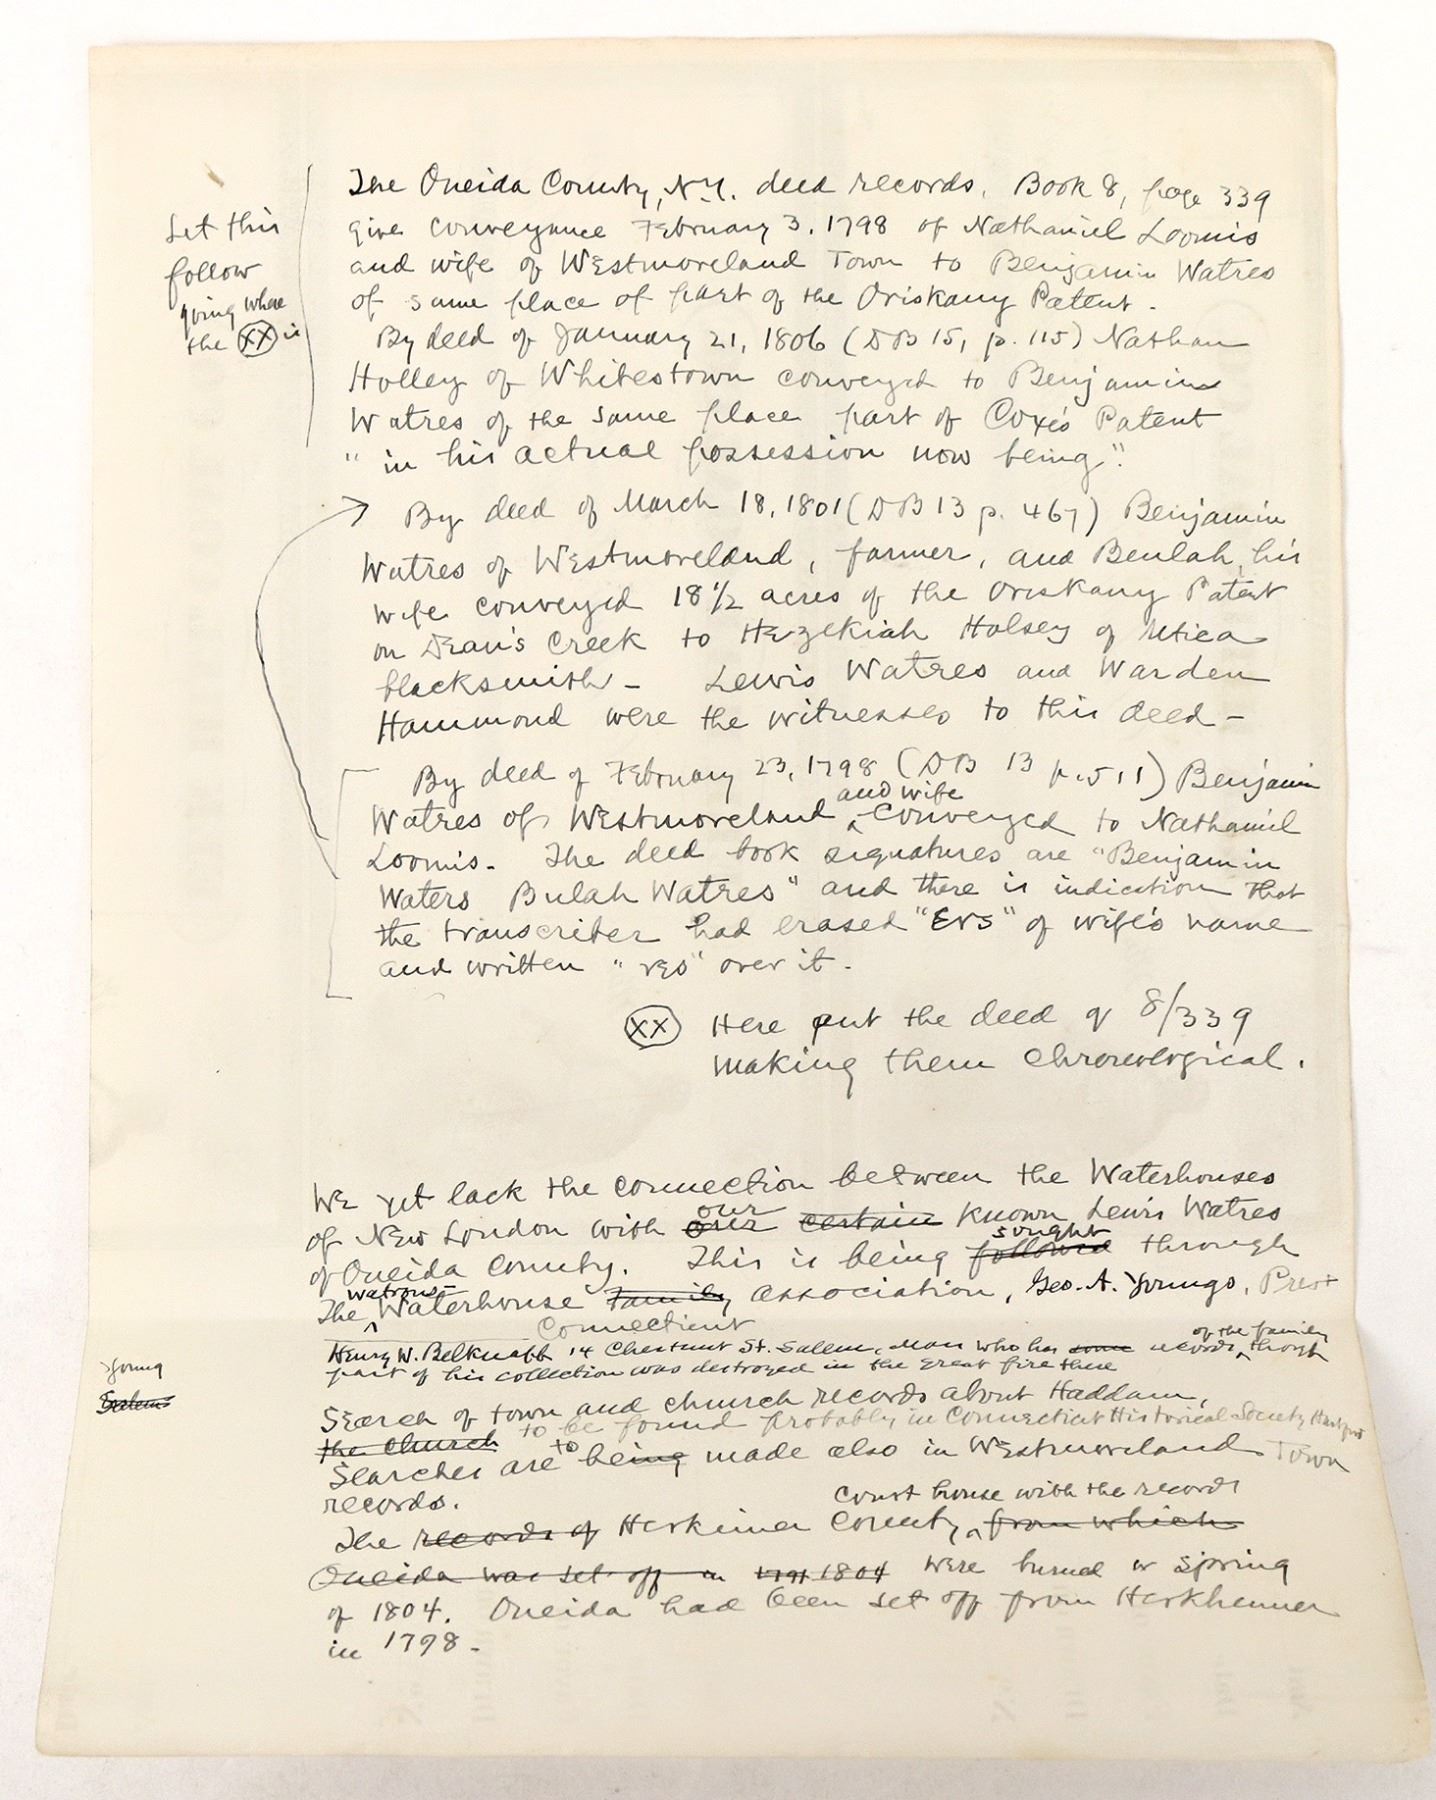 The Oneida County, N.Y. deed records, Book 8, page 339
give conveyance February 3, 1798 of Nathaniel Loomis
and wife of Westmoreland Town to Benjamin Watres
of same place of part of the Oriskany Patent.
Let this
follow
going where
the XX is
By deed of January 21, 1806 (DB 15, p. 115) Nathan
Holley of Whitestown conveyed to Benjamin
Watres of the same place part of Coxe's Patent
"in his actual possession now being".
By deed of March 18, 1801 (DB 13 p. 467) Benjamin
Watres of Westmoreland, farmer, and Beulah, his
wife conveyed 18 1/2 acres of the Oriskany Patent
on Dean's Creek to Hezekiah Halsey of Utica
blacksmith - Lewis Watres and Warden
Hammond were the witnesses to this deed -
By deed of February 23, 1798 (DB 13 p. 511) Benjamin
and wife
Watres of Westmoreland ^ conveyed to Nathaniel
Loomis. The deed book signatures are "Benjamin
Waters Bulah Watres" and there is indication that
the transcriber had erased "ers" of wife's name
and written "res" over it.
XX Here put the deed of 8/339
making them chronological.
We yet lack the connection between the Waterhouses
our
of New London with our certain known Lewis Watres
sought
of Oneida County. This is being followed through
Watrous-
The ^ Waterhouse Family Association, Geo. A. Youngs, Prest
Connecticut
of the family
Henry W. Belknapp 14 Chestnut St. Salem, Mass who has some records, ^ though
part of his collection was destroyed in the great fire there
Young
Salem
Search of town and church records about Haddam,
the church to be found probably in Connecticut Historical Society Hartford
to
Searches are being made also in Westmoreland Town
records.
Court house with the records
The records of Herkimer County, ^ from which
Oneida was set off in 1804 were burned in spring
of 1804. Oneida had been set off from Herkheimer
in 1798 -